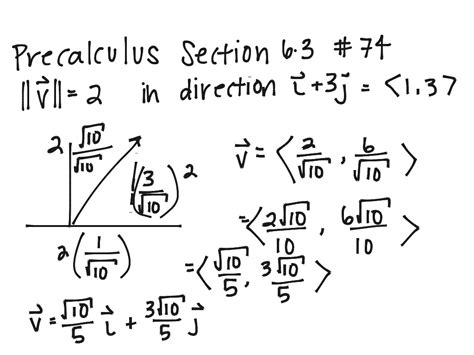 Precalculus Section 6.3 #74
||v⃗|| = 2 in direction i⃗+3j⃗ = <1,3>
2 √10/√10
(3/√10) 2
2(1/√10)
v⃗ = <2/√10, 6/√10>
= <2√10/10, 6√10/10>
= <√10/5, 3√10/5>
v⃗ = √10/5 i⃗ + 3√10/5 j⃗